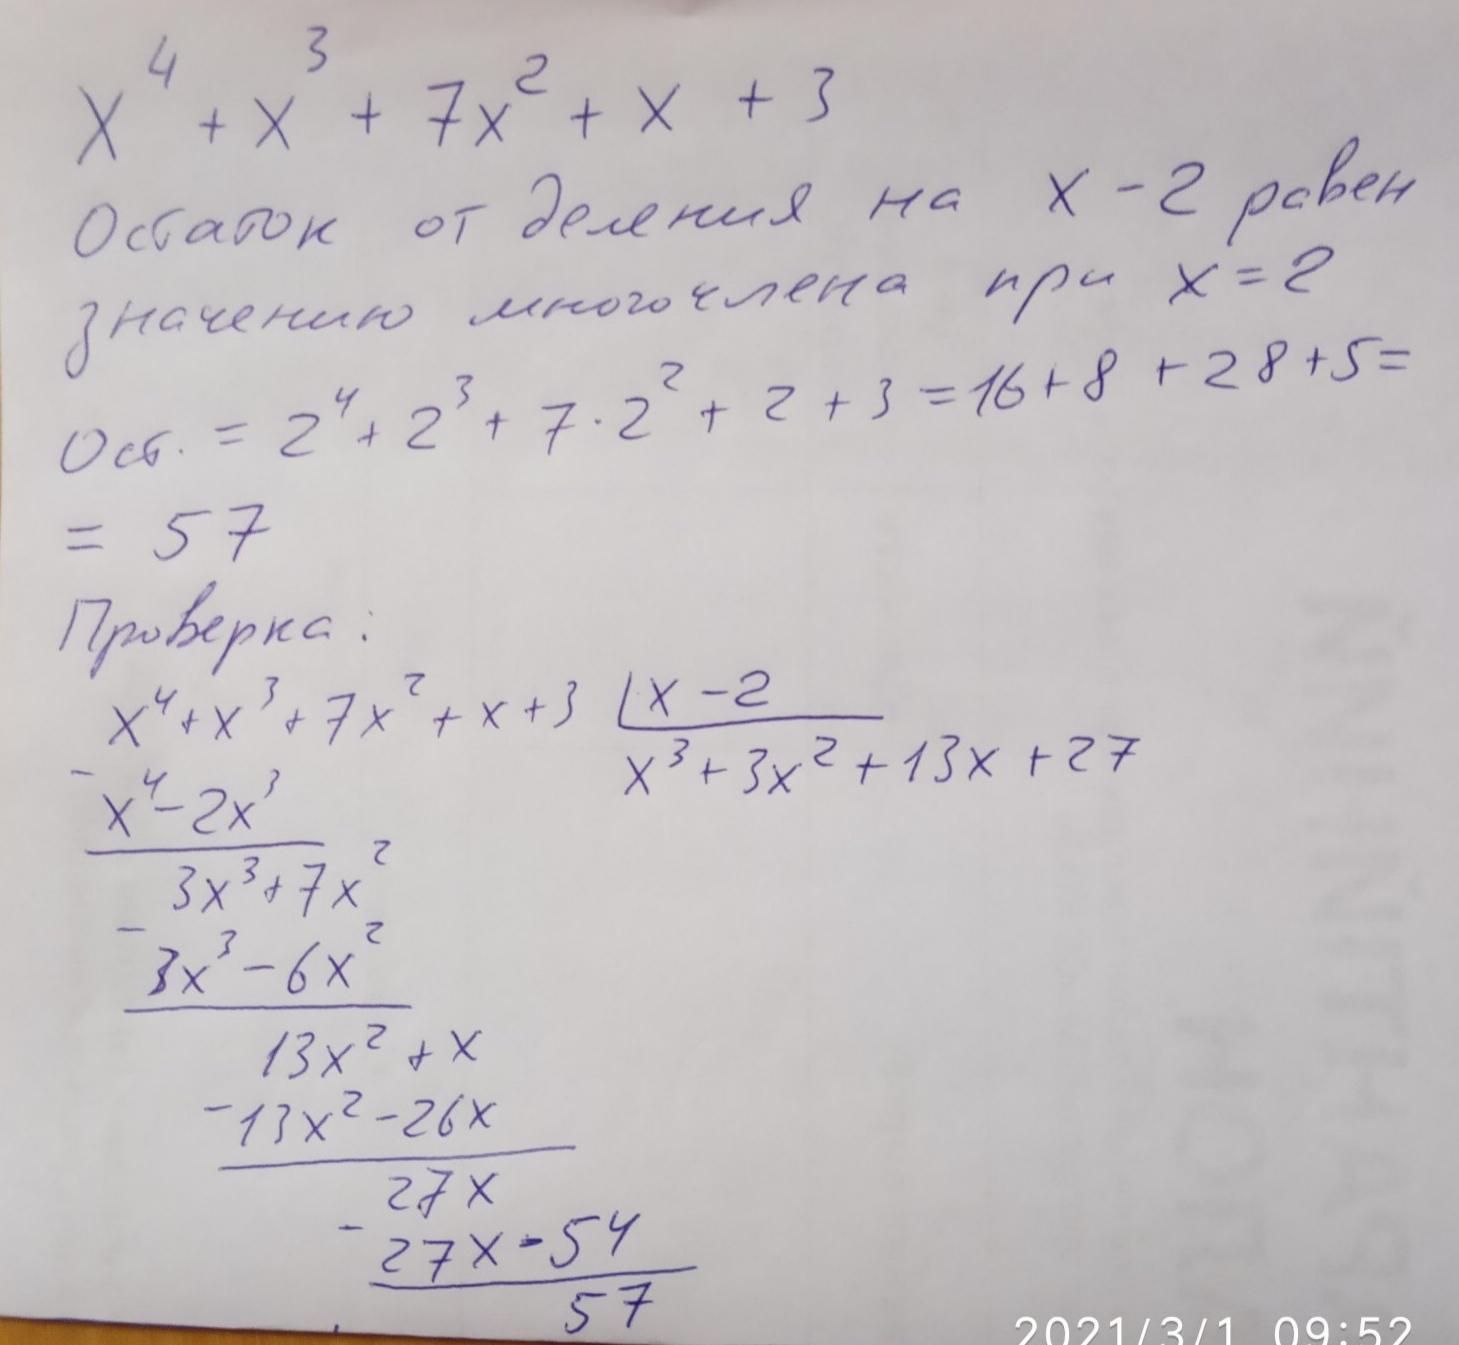 x⁴ + x³ + 7x² + x + 3
Остаток от деления на x - 2 равен
значению многочлена при x = 2
Ост. = 2⁴ + 2³ + 7 · 2² + 2 + 3 = 16 + 8 + 28 + 5 =
= 57
Проверка:
x⁴ + x³ + 7x² + x + 3 | x - 2
x³ + 3x² + 13x + 27
- x⁴ - 2x³
3x³ + 7x²
- 3x³ - 6x²
13x² + x
- 13x² - 26x
27x
- 27x - 54
57
2021/3/1 09:52